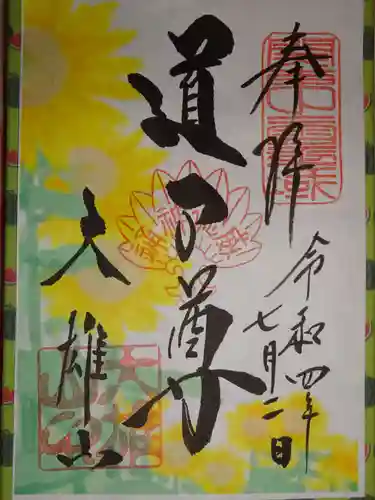 奉拝
令和四年
七月二日
道了尊
大雄山